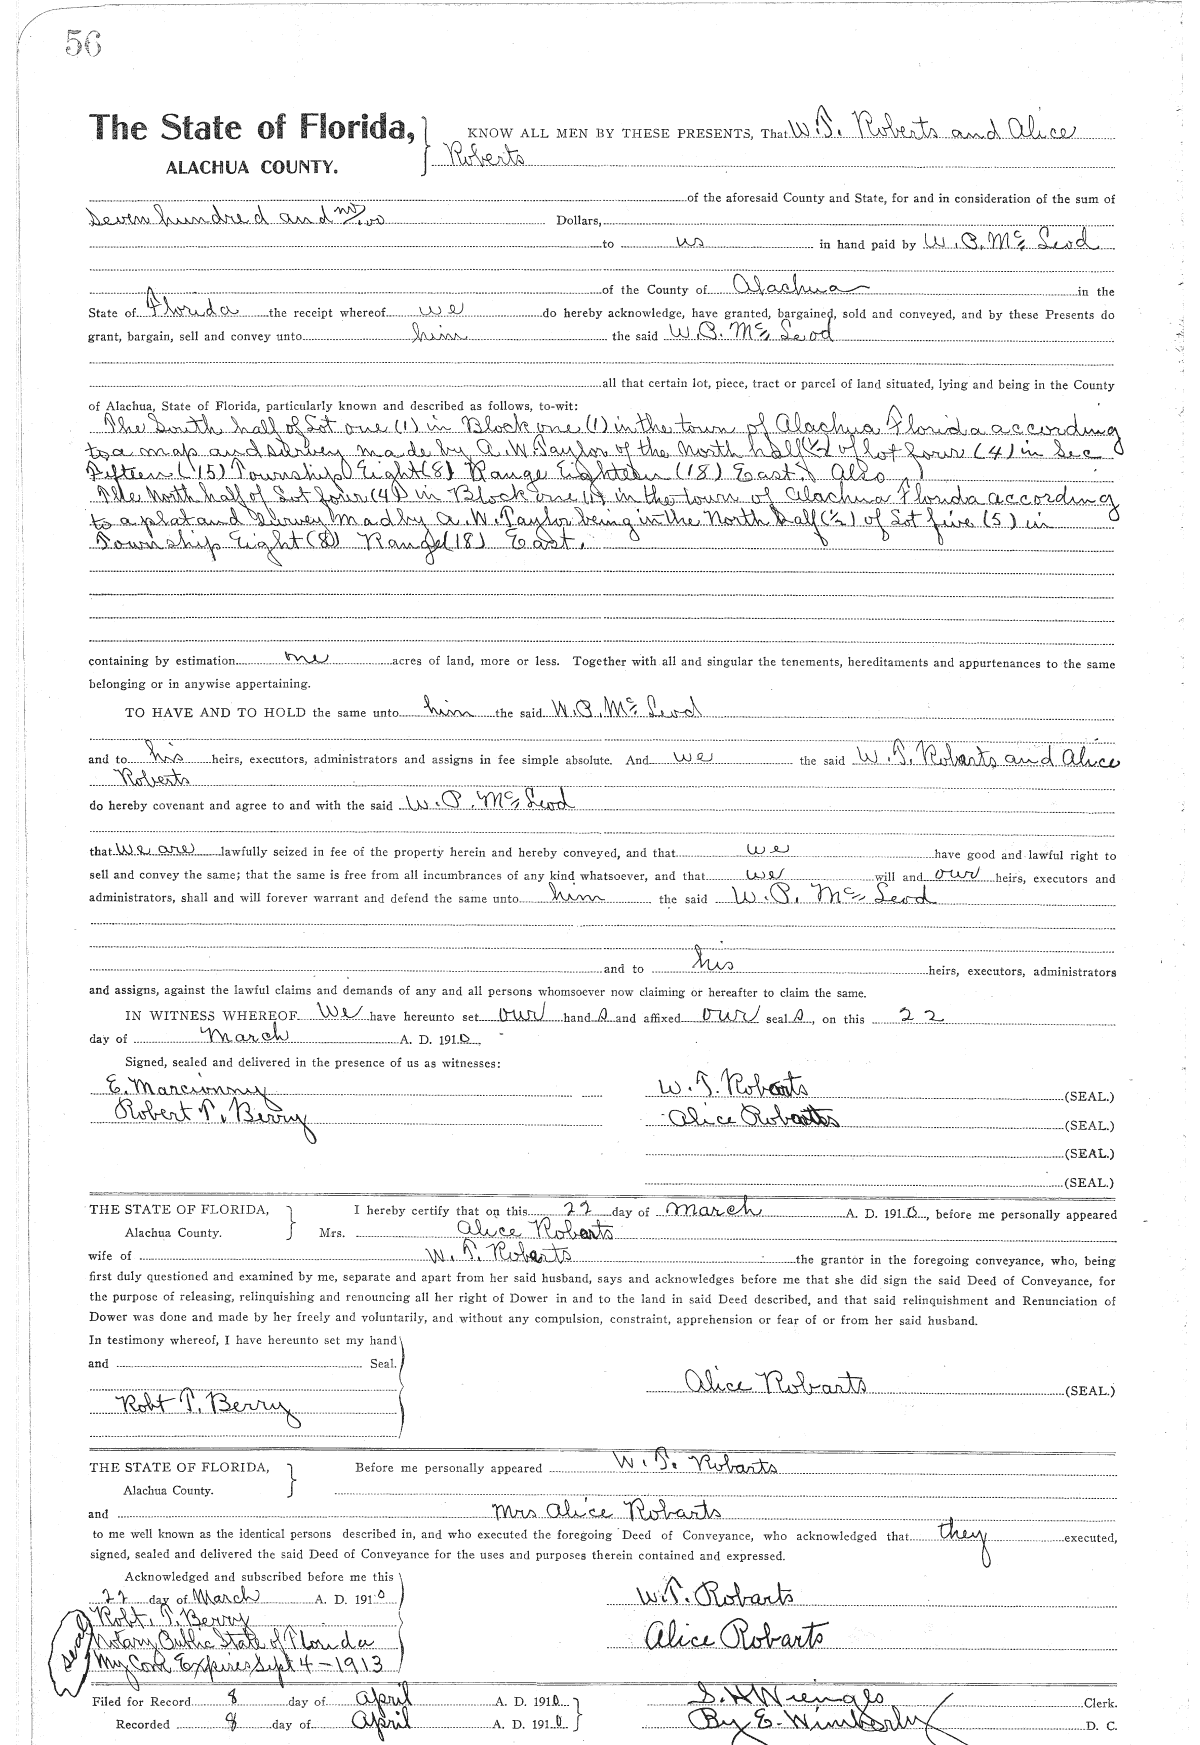 56
The State of Florida, KNOW ALL MEN BY THESE PRESENTS, That W.T. Roberts and Alice
ALACHUA COUNTY. Roberts
of the aforesaid County and State, for and in consideration of the sum of
Seven hundred and no/00 Dollars,
to us in hand paid by W. P. McLeod
of the County of Alachua in the
State of Florida the receipt whereof we do hereby acknowledge, have granted, bargained, sold and conveyed, and by these Presents do
grant, bargain, sell and convey unto him the said W. P. McLeod
all that certain lot, piece, tract or parcel of land situated, lying and being in the County
of Alachua, State of Florida, particularly known and described as follows, to-wit:
The South half of Lot one (1) in Block one (1) in the town of Alachua Florida according
to a map and survey made by A. W. Taylor of the North half (1/2) of lot four (4) in Sec
Fifteen (15) Township Eight (8) Range Eighteen (18) East. Also
The North half of Lot four (4) in Block one (1) in the town of Alachua Florida according
to a plat and Survey mad by A. W. Taylor being in the North Half (1/2) of Lot five (5) in
Township Eight (8) Range (18) East.
containing by estimation one acres of land, more or less. Together with all and singular the tenements, hereditaments and appurtenances to the same
belonging or in anywise appertaining.
TO HAVE AND TO HOLD the same unto him the said W. P. McLeod
and to his heirs, executors, administrators and assigns in fee simple absolute. And we the said W. T. Robarts and Alice
Roberts
do hereby covenant and agree to and with the said W. P. McLeod
that we are lawfully seized in fee of the property herein and hereby conveyed, and that we have good and lawful right to
sell and convey the same; that the same is free from all incumbrances of any kind whatsoever, and that we will and our heirs, executors and
administrators, shall and will forever warrant and defend the same unto him the said W. P. McLeod
and to his heirs, executors, administrators
and assigns, against the lawful claims and demands of any and all persons whomsoever now claiming or hereafter to claim the same.
IN WITNESS WHEREOF We have hereunto set our hand s and affixed our seal s, on this 22
day of March A. D. 1910.
Signed, sealed and delivered in the presence of us as witnesses:
E. W. T. Robarts (SEAL.)
Robert T. Berry Alice Robarts (SEAL.)
(SEAL.)
(SEAL.)
THE STATE OF FLORIDA, I hereby certify that on this 22 day of March A. D. 1910, before me personally appeared
Alachua County. Mrs. Alice Robarts
wife of W. T. Robarts the grantor in the foregoing conveyance, who, being
first duly questioned and examined by me, separate and apart from her said husband, says and acknowledges before me that she did sign the said Deed of Conveyance, for
the purpose of releasing, relinquishing and renouncing all her right of Dower in and to the land in said Deed described, and that said relinquishment and Renunciation of
Dower was done and made by her freely and voluntarily, and without any compulsion, constraint, apprehension or fear of or from her said husband.
In testimony whereof, I have hereunto set my hand
and Seal.
Alice Robarts (SEAL.)
Robt T. Berry
THE STATE OF FLORIDA, Before me personally appeared W. T. Robarts
Alachua County.
and Mrs Alice Robarts
to me well known as the identical persons described in, and who executed the foregoing Deed of Conveyance, who acknowledged that they executed,
signed, sealed and delivered the said Deed of Conveyance for the uses and purposes therein contained and expressed.
Acknowledged and subscribed before me this
22 day of March A. D. 1910 W.T. Robarts
Robt. T. Berry
Notary Public State of Florida Alice Robarts
Seal My Com Expires Sept 4-1913
Filed for Record 8 day of April A. D. 1910 S. H. Clerk.
Recorded 8 day of April A. D. 1910. By E. Wimberly D. C.